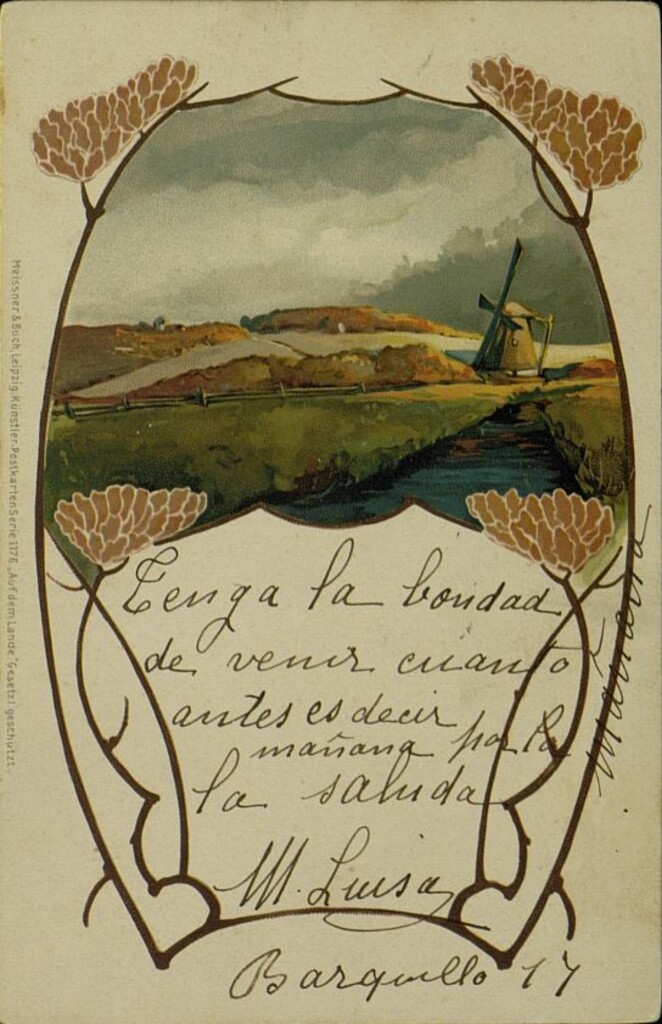 Tenga la bondad
de venir cuanto
antes es decir
mañana por la
la saluda
M. Luisa
Barquillo 17
mañana
Meissner & Buch, Leipzig. Künstler-Postkarten Serie 1176 „Auf dem Lande." Gesetzl. geschützt.